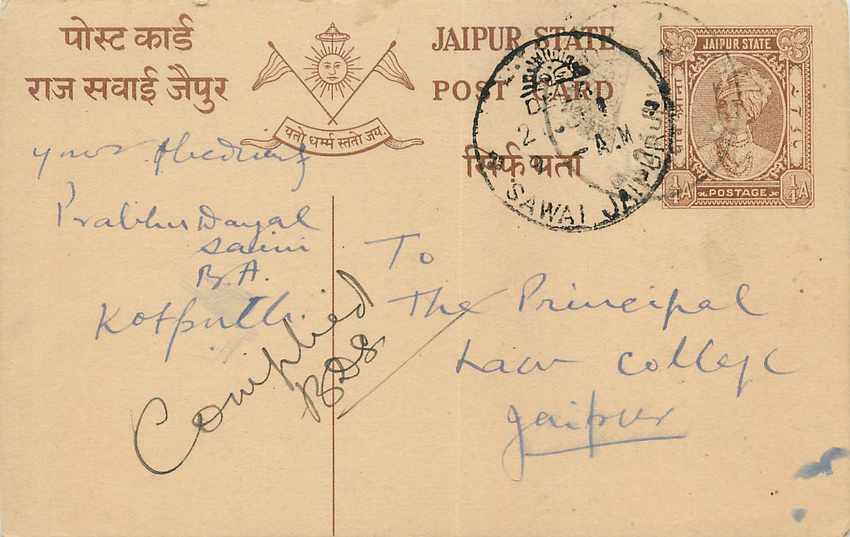 पोस्ट कार्ड
राज सवाई जैपुर
यतो धर्म्म स्ततो जय.
JAIPUR STATE
POST CARD
सिर्फ पता
JAIPUR STATE
POSTAGE
¼A ¼A
SAWAI JAIPUR
A.M
yours
Prabhu Dayal
Saini
B.A.
Kotputli
Complied
BDS
To
The Principal
Law College
Jaipur